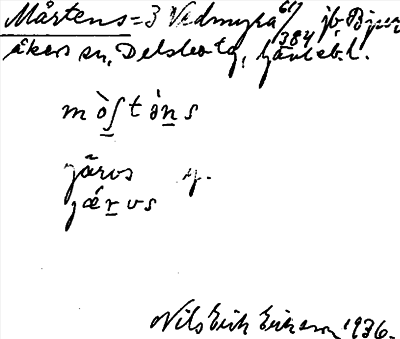 Mårtens = 3 Vedmyra 61/384 jb Bjuråkers sn, Delsbo tg, Gävleb. l.
m ò ʃ t ə̀ n s
gårvs g.
g ǽ r v s
Nils Erik Eriksson 1936.